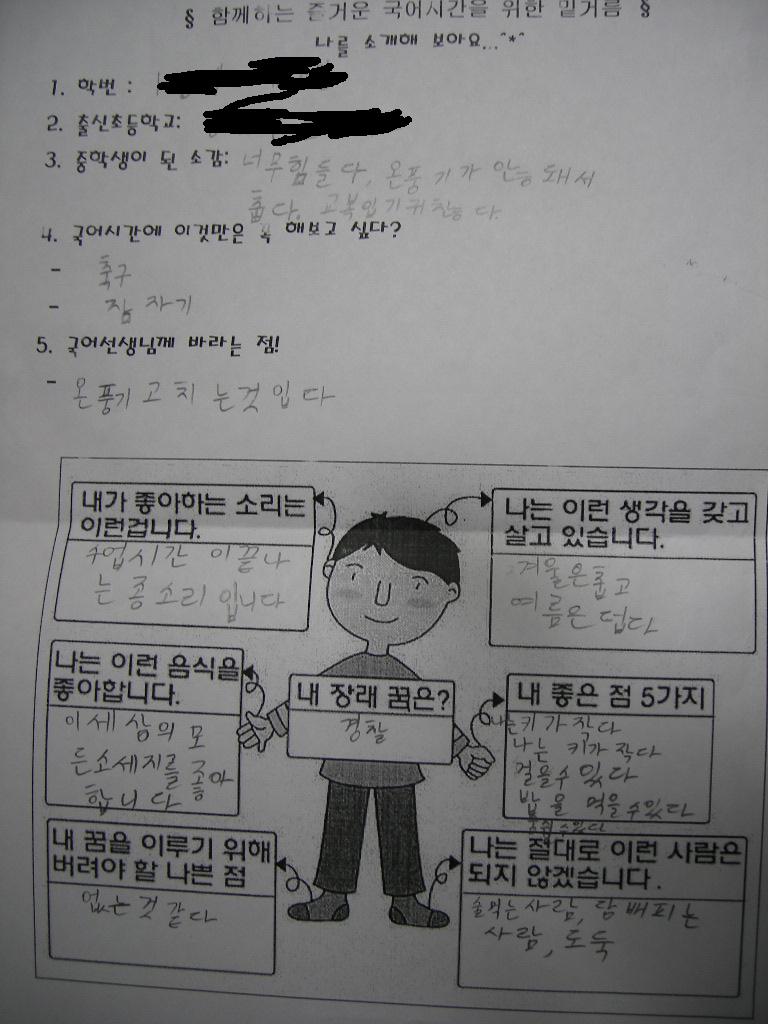 § 함께하는 즐거운 국어시간을 위한 밑거름 §
나를 소개해 보아요...^*^
1. 학번 :
2. 출신초등학교:
3. 중학생이 된 소감: 너무힘들다, 온풍기가 안능돼서
춥다. 교복입기귀찮능다.
4. 국어시간에 이것만은 꼭 해보고 싶다?
- 축구
- 잠자기
5. 국어선생님께 바라는 점!
- 온풍기고치는것입다
내가 좋아하는 소리는
이런겁니다.
수업시간이끝나
는종소리입니다
나는 이런 생각을 갖고
살고 있습니다.
겨울은춥고
여름은덥다
나는 이런 음식을
좋아합니다.
이세상의모
든소세지를좋아
합니다
내 장래 꿈은?
경찰
내 좋은 점 5가지
나는키가작다
나는 키가작다
걸을수있다
밥을 먹을수있다
숨쉴수있다
내 꿈을 이루기 위해
버려야 할 나쁜 점
없는것같다
나는 절대로 이런 사람은
되지 않겠습니다.
술먹는사람,담배피는
사람, 도둑